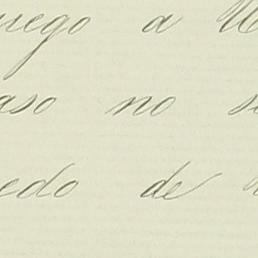 uego a U
aso no s
edo de